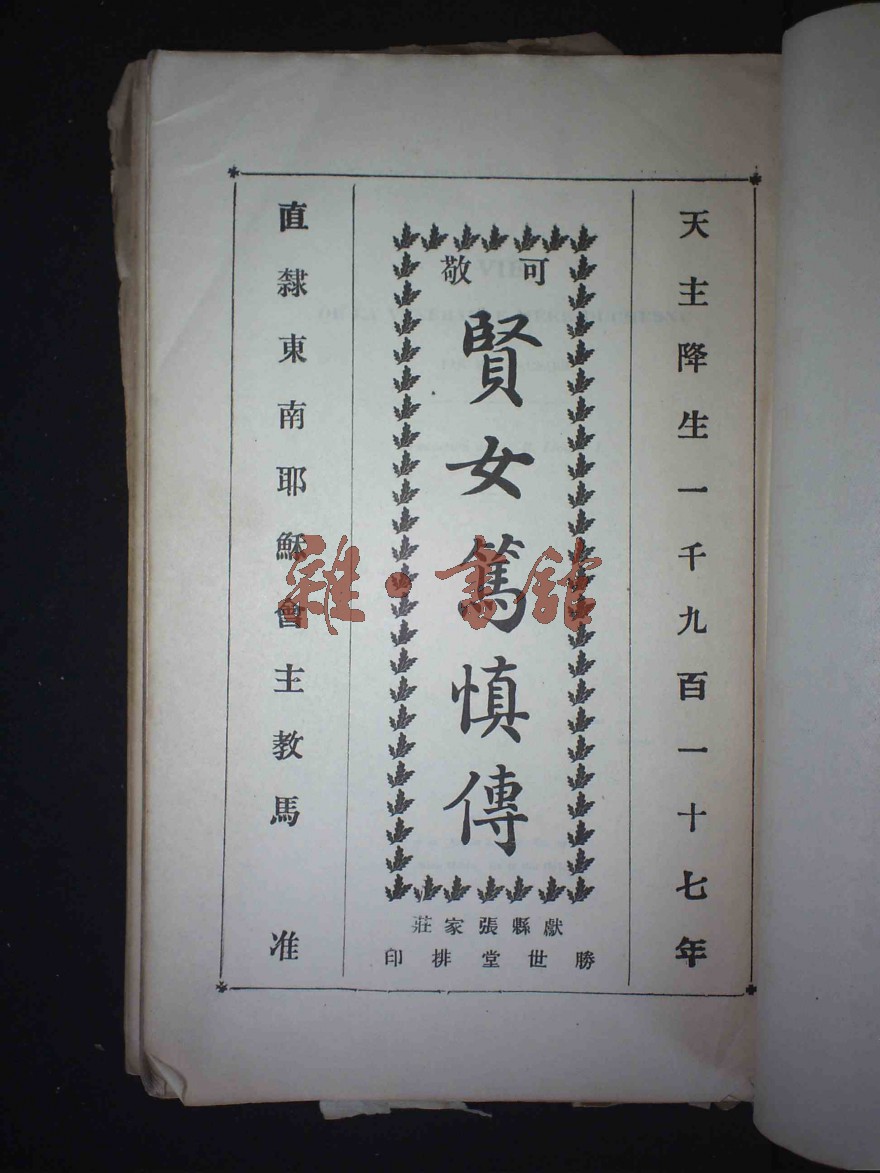 天主降生一千九百一十七年
可敬
賢女篤慎傳
獻縣張家莊
勝世堂排印
直隸東南耶穌會主教馬 准
雜·書館